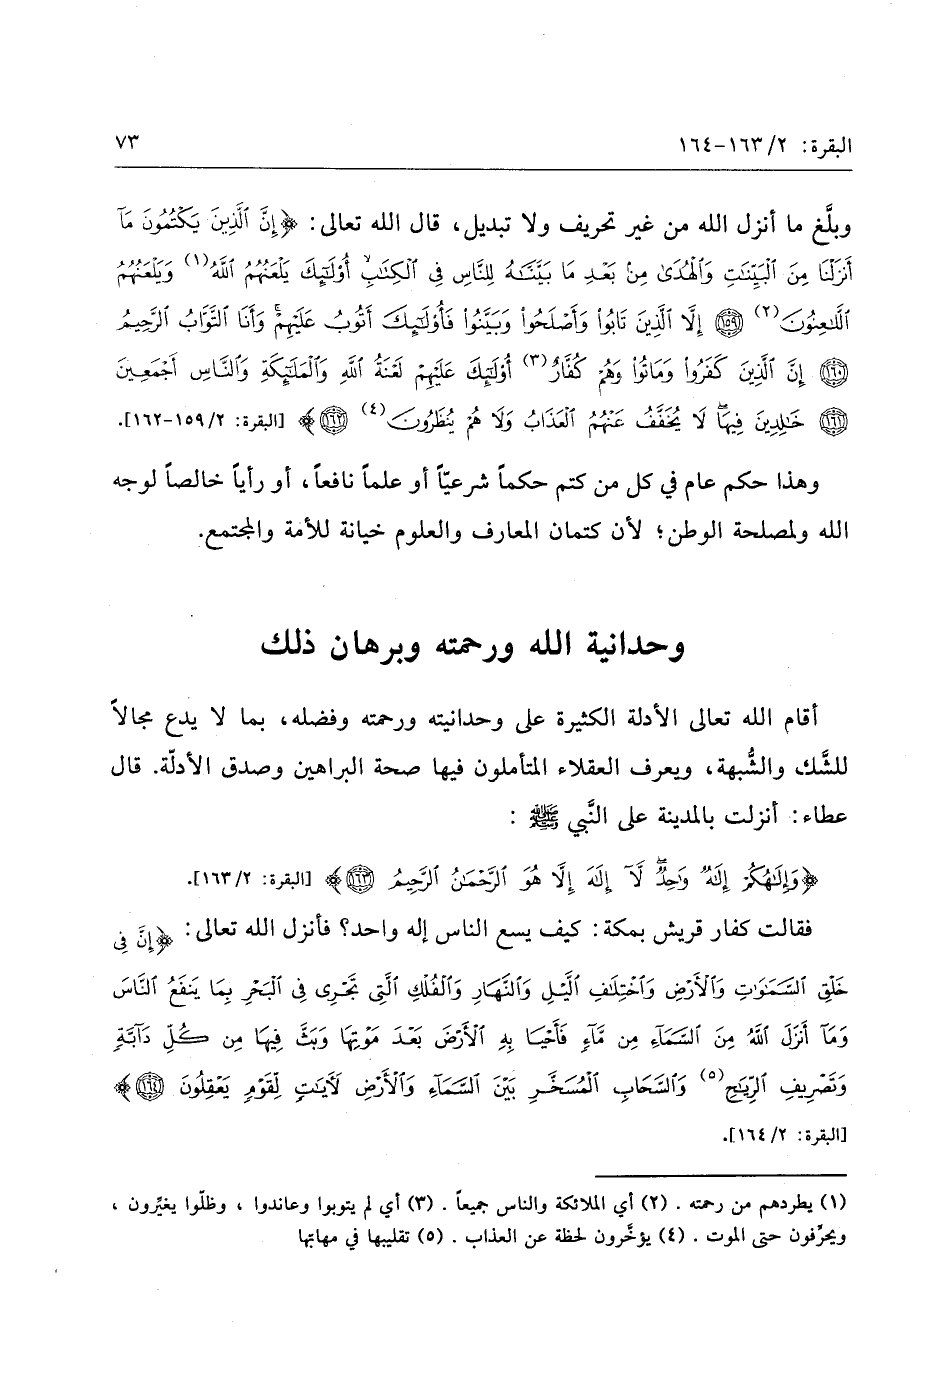 البقرة: ٢/ ١٦٣-١٦٤ ٧٣
وبلَّغ ما أنزل الله من غير تحريف ولا تبديل، قال الله تعالى: ﴿إِنَّ ٱلَّذِينَ يَكْتُمُونَ مَآ
أَنزَلْنَا مِنَ ٱلْبَيِّنَٰتِ وَٱلْهُدَىٰ مِنۢ بَعْدِ مَا بَيَّنَّٰهُ لِلنَّاسِ فِى ٱلْكِتَٰبِ ۙ أُو۟لَٰٓئِكَ يَلْعَنُهُمُ ٱللَّهُ(١) وَيَلْعَنُهُمُ
ٱللَّٰعِنُونَ(٢) ١٥٩ إِلَّا ٱلَّذِينَ تَابُوا۟ وَأَصْلَحُوا۟ وَبَيَّنُوا۟ فَأُو۟لَٰٓئِكَ أَتُوبُ عَلَيْهِمْ ۚ وَأَنَا ٱلتَّوَّابُ ٱلرَّحِيمُ
١٦٠ إِنَّ ٱلَّذِينَ كَفَرُوا۟ وَمَاتُوا۟ وَهُمْ كُفَّارٌ(٣) أُو۟لَٰٓئِكَ عَلَيْهِمْ لَعْنَةُ ٱللَّهِ وَٱلْمَلَٰٓئِكَةِ وَٱلنَّاسِ أَجْمَعِينَ
١٦١ خَٰلِدِينَ فِيهَا ۖ لَا يُخَفَّفُ عَنْهُمُ ٱلْعَذَابُ وَلَا هُمْ يُنظَرُونَ(٤) ١٦٢﴾ [البقرة: ٢/ ١٥٩-١٦٢].
وهذا حكم عام في كل من كتم حكماً شرعيّاً أو علماً نافعاً، أو رأياً خالصاً لوجه
الله ولمصلحة الوطن؛ لأن كتمان المعارف والعلوم خيانة للأمة والمجتمع.
وحدانية الله ورحمته وبرهان ذلك
أقام الله تعالى الأدلة الكثيرة على وحدانيته ورحمته وفضله، بما لا يدع مجالاً
للشَّك والشُّبهة، ويعرف العقلاء المتأملون فيها صحة البراهين وصدق الأدلّة. قال
عطاء: أنزلت بالمدينة على النَّبي ﷺ :
﴿وَإِلَٰهُكُمْ إِلَٰهٌ وَٰحِدٌ ۖ لَّآ إِلَٰهَ إِلَّا هُوَ ٱلرَّحْمَٰنُ ٱلرَّحِيمُ ١٦٣﴾ [البقرة: ٢/ ١٦٣].
فقالت كفار قريش بمكة: كيف يسع الناس إله واحد؟ فأنزل الله تعالى: ﴿إِنَّ فِى
خَلْقِ ٱلسَّمَٰوَٰتِ وَٱلْأَرْضِ وَٱخْتِلَٰفِ ٱلَّيْلِ وَٱلنَّهَارِ وَٱلْفُلْكِ ٱلَّتِى تَجْرِى فِى ٱلْبَحْرِ بِمَا يَنفَعُ ٱلنَّاسَ
وَمَآ أَنزَلَ ٱللَّهُ مِنَ ٱلسَّمَآءِ مِن مَّآءٍ فَأَحْيَا بِهِ ٱلْأَرْضَ بَعْدَ مَوْتِهَا وَبَثَّ فِيهَا مِن كُلِّ دَآبَّةٍ
وَتَصْرِيفِ ٱلرِّيَٰحِ(٥) وَٱلسَّحَابِ ٱلْمُسَخَّرِ بَيْنَ ٱلسَّمَآءِ وَٱلْأَرْضِ لَءَايَٰتٍ لِّقَوْمٍ يَعْقِلُونَ ١٦٤﴾
[البقرة: ٢/ ١٦٤].
(١) يطردهم من رحمته . (٢) أي الملائكة والناس جميعاً . (٣) أي لم يتوبوا وعاندوا ، وظلّوا يغيِّرون ،
ويحرِّفون حتى الموت . (٤) يؤخَّرون لحظة عن العذاب . (٥) تقليبها في مهابّها